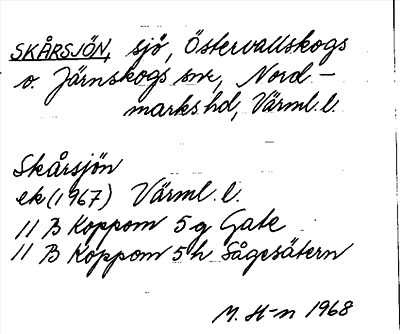 SKÅRSJÖN, sjö, Östervallskogs
o. Järnskogs snr, Nord-
marks hd, Värml. l.
Skårsjön
ek (1967) Värml. l.
11 B Koppom 5 g Gate
11 B Koppom 5 h Sågesätern
M. H-n 1968